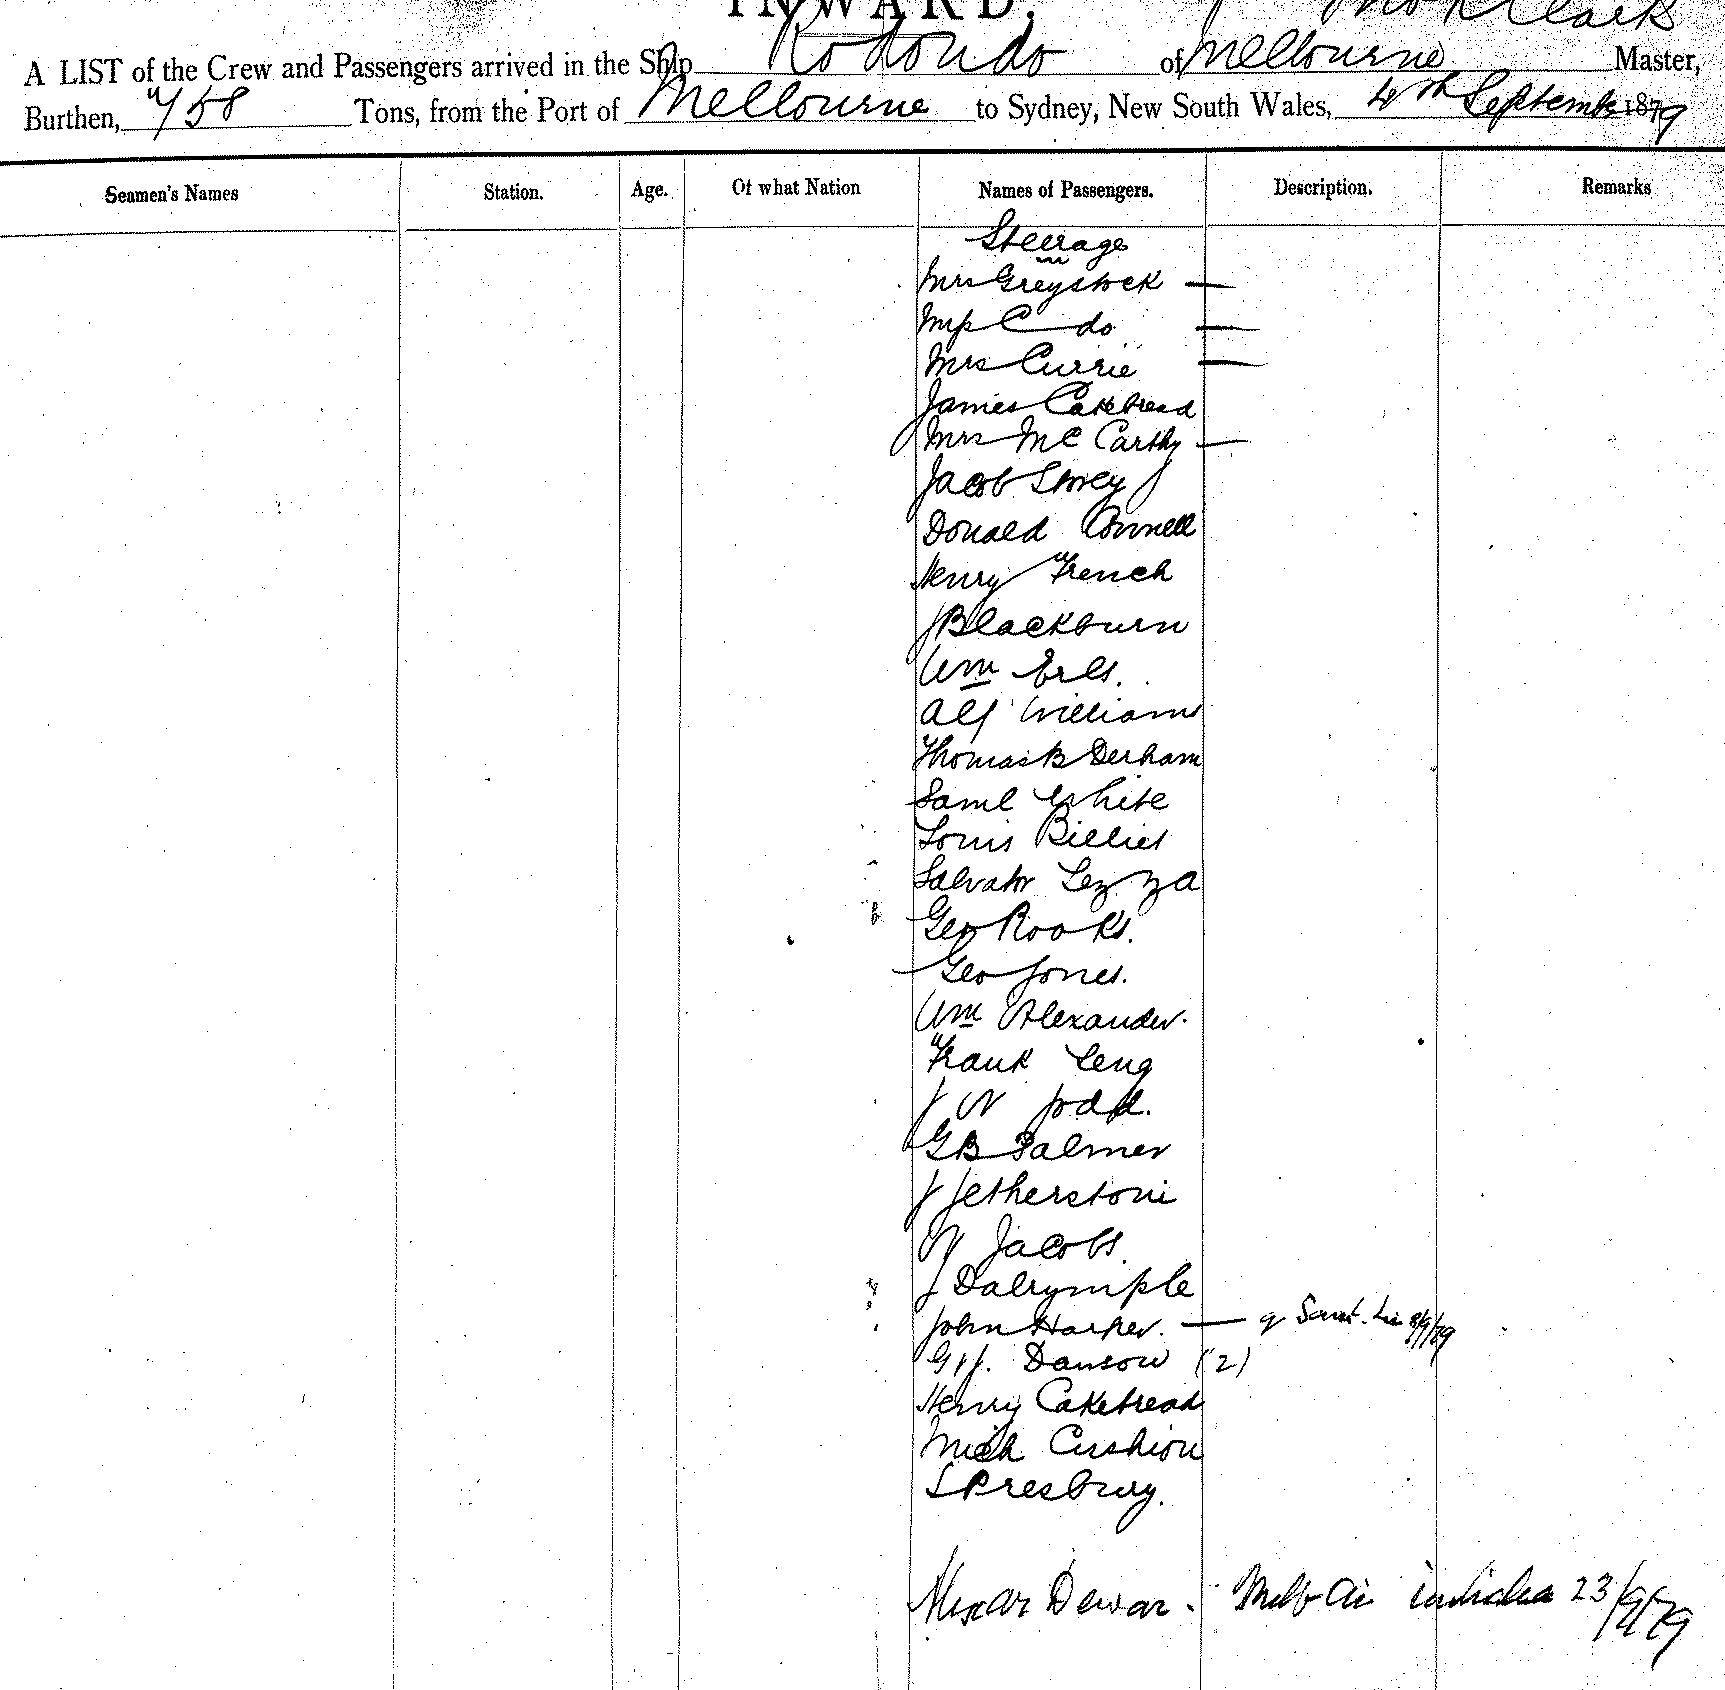 INWARD.
A LIST of the Crew and Passengers arrived in the Ship Rodondo of Melbourne Clark Master,
Burthen, 758 Tons, from the Port of Melbourne to Sydney, New South Wales, 4th September 1879
Seamen's Names Station. Age. Of what Nation Names of Passengers. Description. Remarks
Steerage
Mrs Greystock —
C do —
Mrs Currie —
James Cakebread
Mrs Mc Carthy —
Jacob Storey
Donald Connell
Henry French
J Blackburn
Wm Erls.
Alf Williams
Thomas B Derham
Saml White
Louis Billiet
Salvator Lezza
Geo Rooks.
Geo Jones.
Wm Alexander.
Frank Leng
J W Jodd.
GB Palmer
J Jetherstone
W Jacobs.
J Dalrymple
John Harper. — 9/9/79
Dawson (2)
Henry Cakebread
Mich Cushion
S Presbury.
Alexdr Dewar. 23/9/79